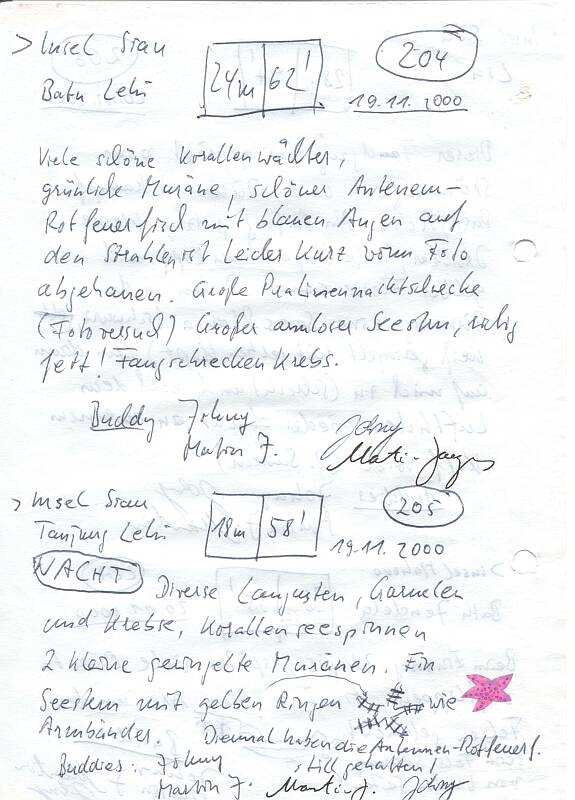 > Insel Siau
24m 62'
204
Batu Lehi
19.11.2000
Viele schöne Korallenwächter,
grünliche Muräne, schöner Antenem-
Rotfeuerfisch mit blauen Augen auf
den Strahlen ist leider kurz vorm Foto
abgehauen. Große Pralinennacktschnecke
(Fotoversuch) Großer armloser Seestern, richtig
fett! Fangschreckenkrebs.
Buddy Johny
Martin J.
Johny
> Insel Siau
18m 58'
205
Tanjung Lehi
19.11.2000
NACHT
Diverse Langusten, Garnelen
und Krebse, Korallenseespinnen
2 kleine geringelte Muränen. Ein
Seestern mit gelben Ringen wie
Armbänder. Diesmal haben die Antennen-Rotfeuerf.
still gehalten!
Buddies: Johny
Martin J.
Martin J. Johny